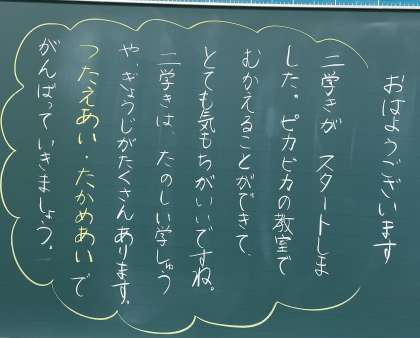 おはようございます
二学きが スタートしま
した。ピカピカの教室で
むかえることができて、
とても気もちがいいですね。
二学きは、たのしい学しゅう
や、ぎょうじがたくさんあります。
つたえあい・たかめあいで
がんばっていきましょう。